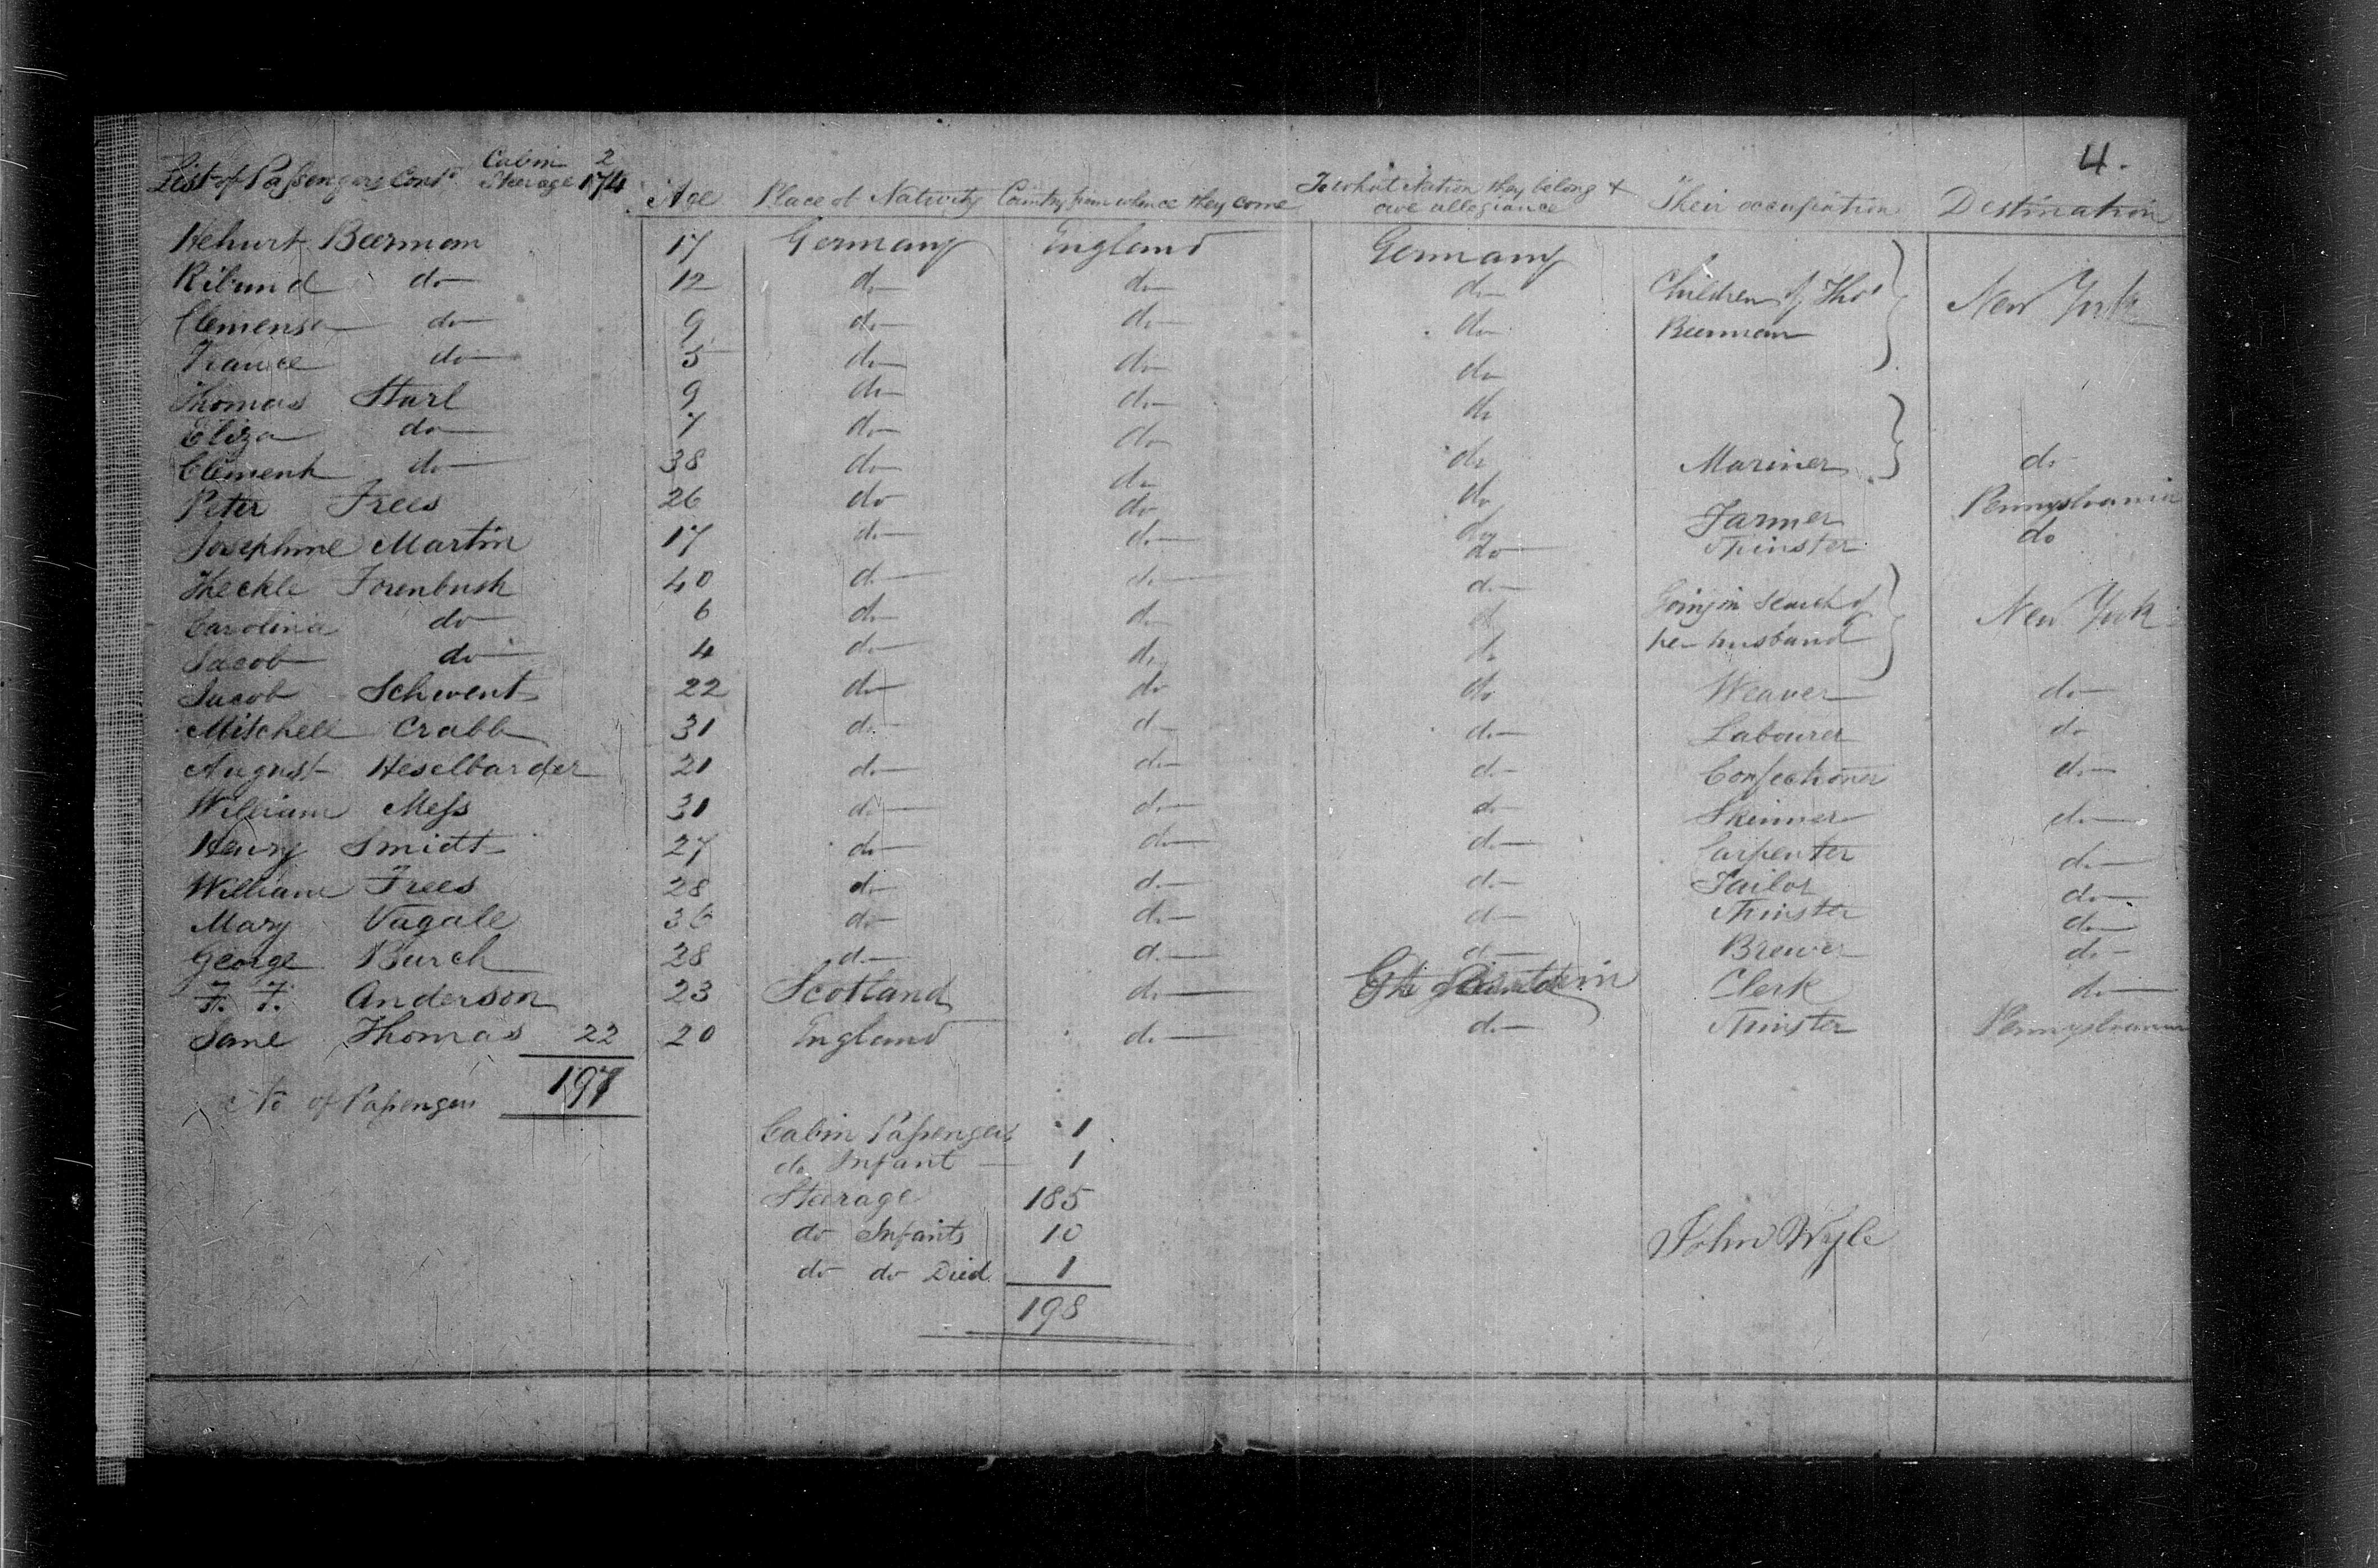 4.
List of Passengers Cont^d Cabin 2 Steerage 174 Age Place of Nativity Country from whence they come To what Nation they belong & owe allegiance Their occupation Destination
Beerman 17 Germany England Germany
do 12 do do do Children of Tho^s New York
Clemensa do 9 do do do Beerman
France do 5 do do do
Thomas Starl 9 do do do
Eliza do 7 do do do
Clement do 38 do do do Mariner do
Peter Frees 26 do do do Farmer Pennyslvania
Josephine Martin 17 do do do do do
Heckle Forenbush 40 do do do Going in search of New York
Carolina do 6 do do do her husband
Jacob do 4 do do do
Jacob Schwent 22 do do do Weaver do
Mitchell Crabb 31 do do do Labourer do
August Heselbarder 21 do do do Confectioner do
William Mess 31 do do do Skinner do
Henry Smidt 27 do do do Carpenter do
William Frees 28 do do do Tailor do
Mary Vagale 36 do do do do
George Burch 28 do do do Brewer do
F. F. Anderson 23 Scotland do Clerk do
Jane Thomas 22 20 England do do Pennyslvania
197
No of Passengers
Cabin Passengers 1
do Infant 1
Steerage 185
do Infants 10
do do Died 1
198
John Wyle